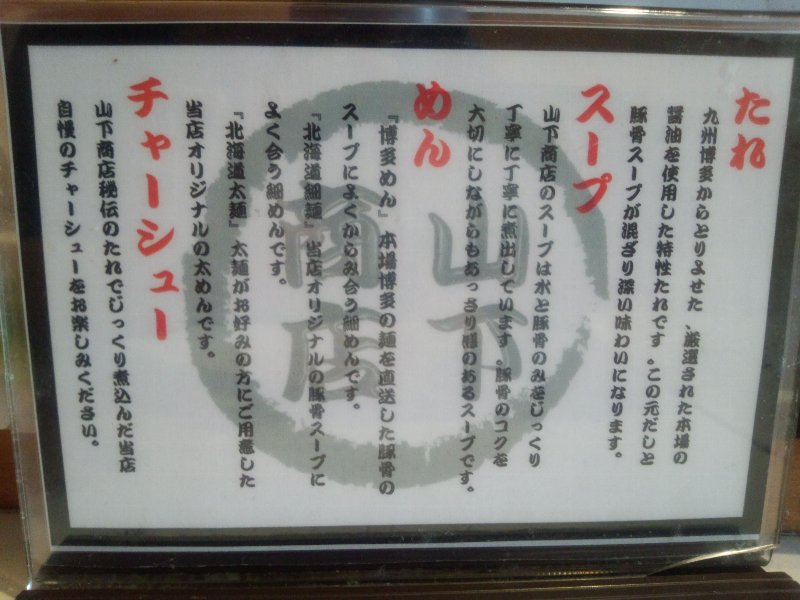 たれ
九州博多からとりよせた、厳選された本場の
醤油を使用した特性たれです。この元だしと
豚骨スープが混ざり深い味わいになります。
スープ
山下商店のスープは水と豚骨のみをじっくり
丁寧に丁寧に煮出しています。豚骨のコクを
大切にしながらもあっさり感のあるスープです。
めん
『博多めん』本場博多の麺を直送した豚骨の
スープによくからみ合う細めんです。
『北海道細麺』当店オリジナルの豚骨スープに
よく合う細めんです。
『北海道太麺』太麺がお好みの方にご用意した
当店オリジナルの太めんです。
チャーシュー
山下商店秘伝のたれでじっくり煮込んだ当店
自慢のチャーシューをお楽しみください。
山下
商店